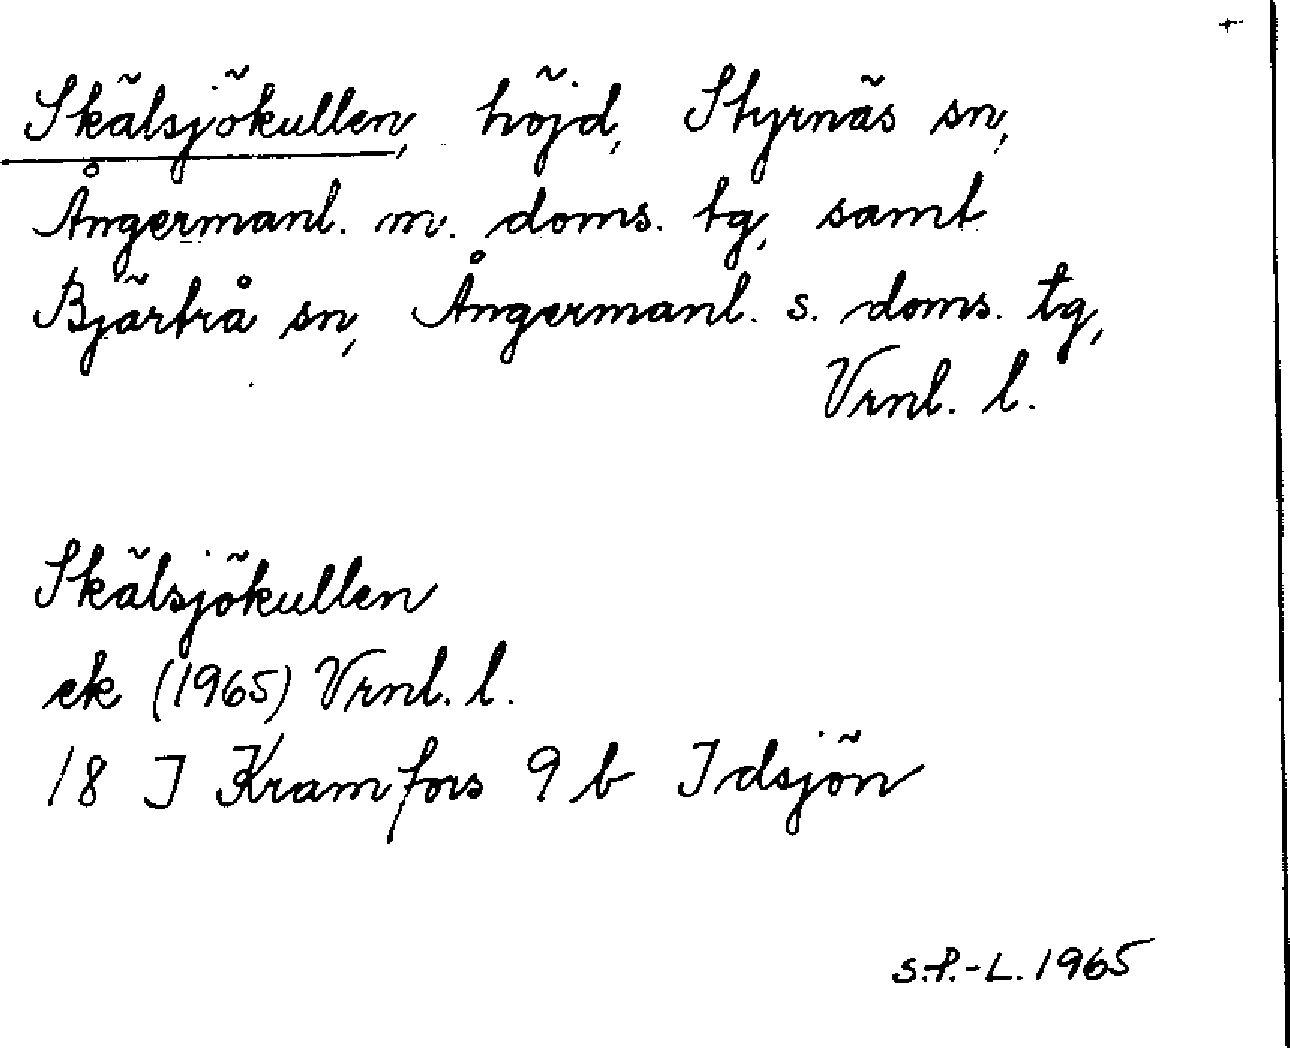 +
Skälsjökullen, höjd, Styrnäs sn,
Ångermanl. m. doms. tg, samt
Bjärtrå sn, Ångermanl. s. doms. tg,
Vrnl. l.
Skälsjökullen
ek (1965) Vrnl. l.
18 I Kramfors 9 b Idsjön
S.P.-L. 1965